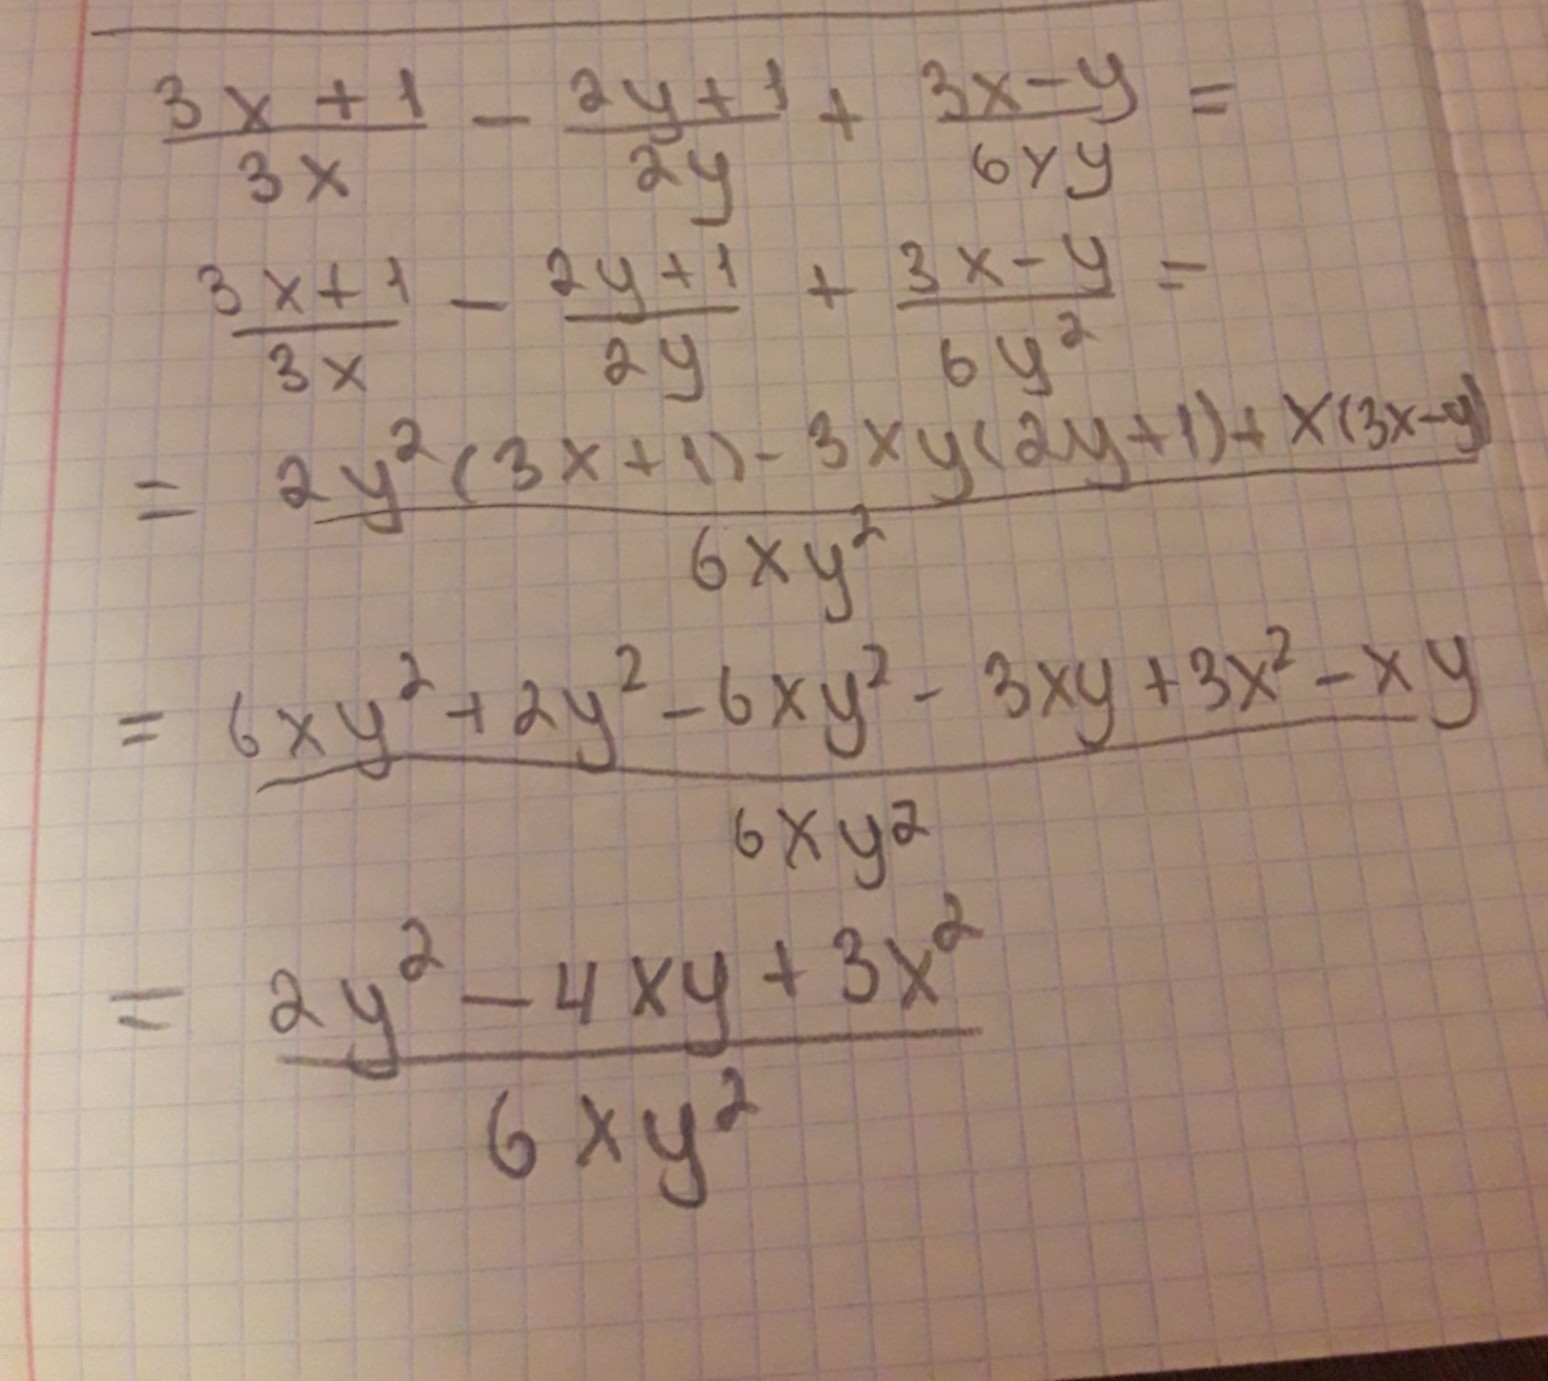 (3x+1)/(3x) - (2y+1)/(2y) + (3x-y)/(6xy) =
(3x+1)/(3x) - (2y+1)/(2y) + (3x-y)/(6y²) =
= (2y²(3x+1) - 3xy(2y+1) + x(3x-y))/(6xy²)
= (6xy² + 2y² - 6xy² - 3xy + 3x² - xy)/(6xy²)
= (2y² - 4xy + 3x²)/(6xy²)